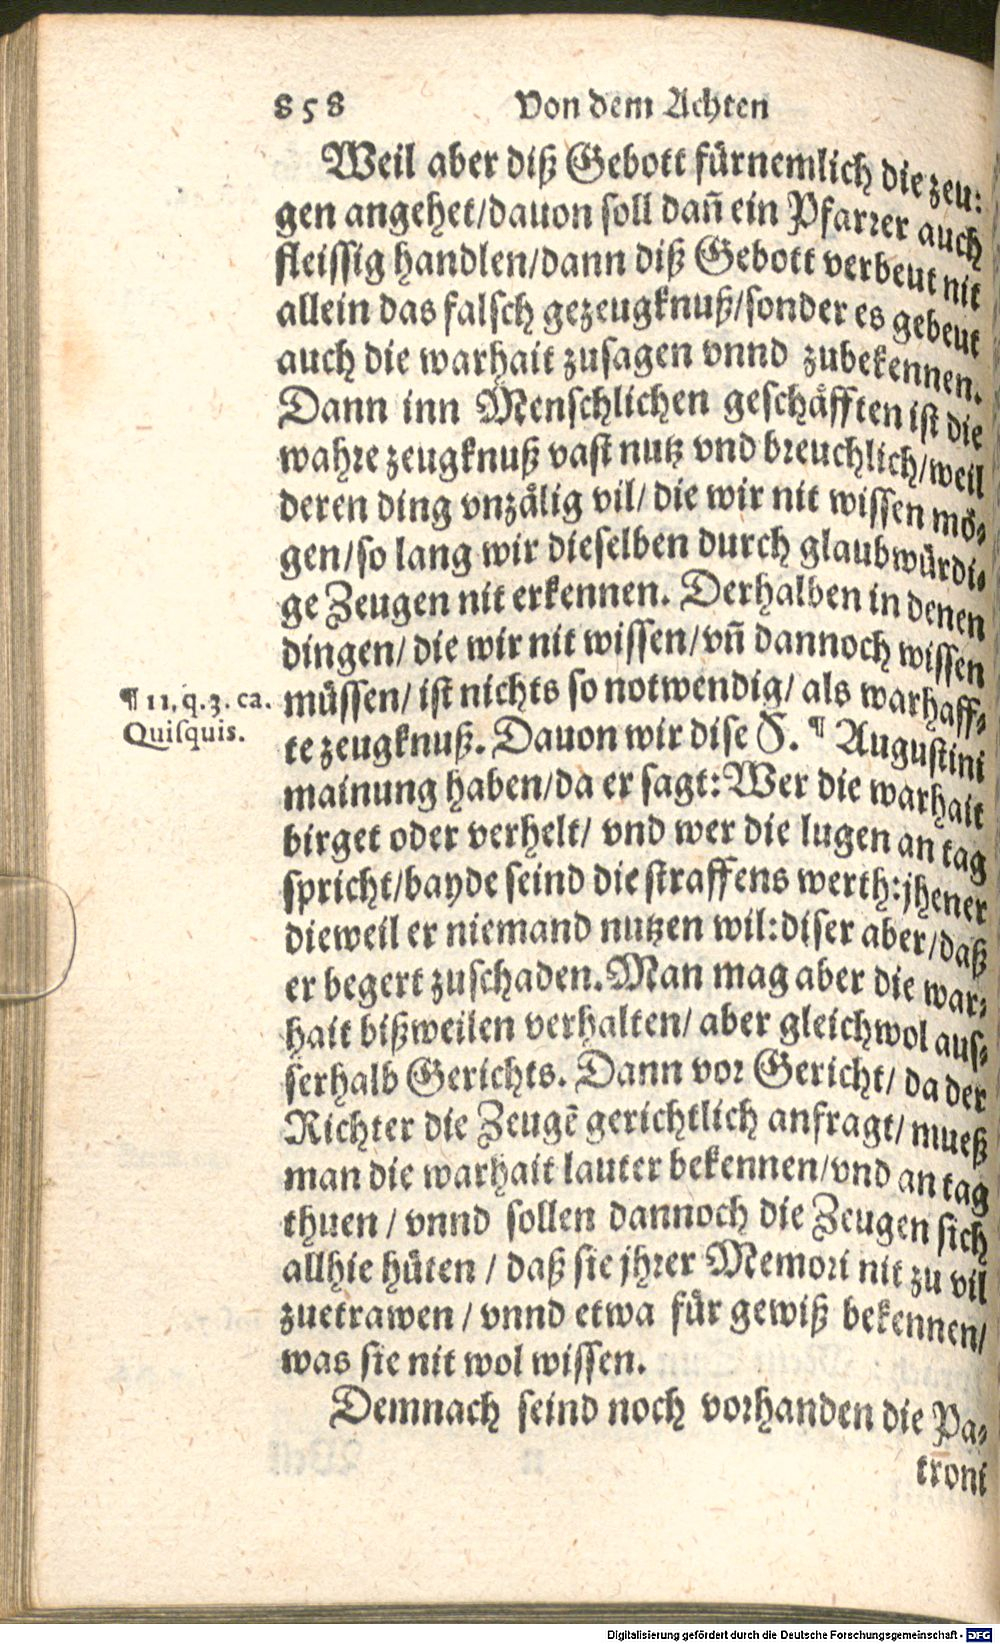 858 Von dem Achten
Weil aber diß Gebott fürnemlich die zeu⸗
gen angehet/dauon soll dañ ein Pfarrer auch
fleissig handlen/dann diß Gebott verbeut nit
allein das falsch gezeugknuß/sonder es gebeut
auch die warhait zusagen vnnd zubekennen.
Dann inn Menschlichen geschäfften ist die
wahre zeugknuß vast nutz vnd breuchlich/weil
deren ding vnzälig vil/ die wir nit wissen mö⸗
gen/so lang wir dieselben durch glaubwürdi⸗
ge Zeugen nit erkennen. Derhalben in denen
dingen/ die wir nit wissen/vñ dannoch wissen
müssen/ ist nichts so notwendig/ als warhaff⸗
te zeugknuß. Dauon wir dise S. ¶ Augustini
mainung haben/da er sagt: Wer die warhait
birget oder verhelt/ vnd wer die lugen an tag
spricht/bayde seind die straffens werth: jhener
dieweil er niemand nutzen wil: diser aber/daß
er begert zuschaden. Man mag aber die war⸗
hait bißweilen verhalten/ aber gleichwol aus⸗
serhalb Gerichts. Dann vor Gericht/ da der
Richter die Zeugē gerichtlich anfragt/ mueß
man die warhait lauter bekennen/vnd an tag
thuen / vnnd sollen dannoch die Zeugen sich
allhie hüten / daß sie jhrer Memori nit zu vil
zuetrawen / vnnd etwa für gewiß bekennen/
was sie nit wol wissen.
Demnach seind noch vorhanden die Pa⸗
troni
¶ 11. q. 3. ca.
Quisquis.
Digitalisierung gefördert durch die Deutsche Forschungsgemeinschaft - DFG